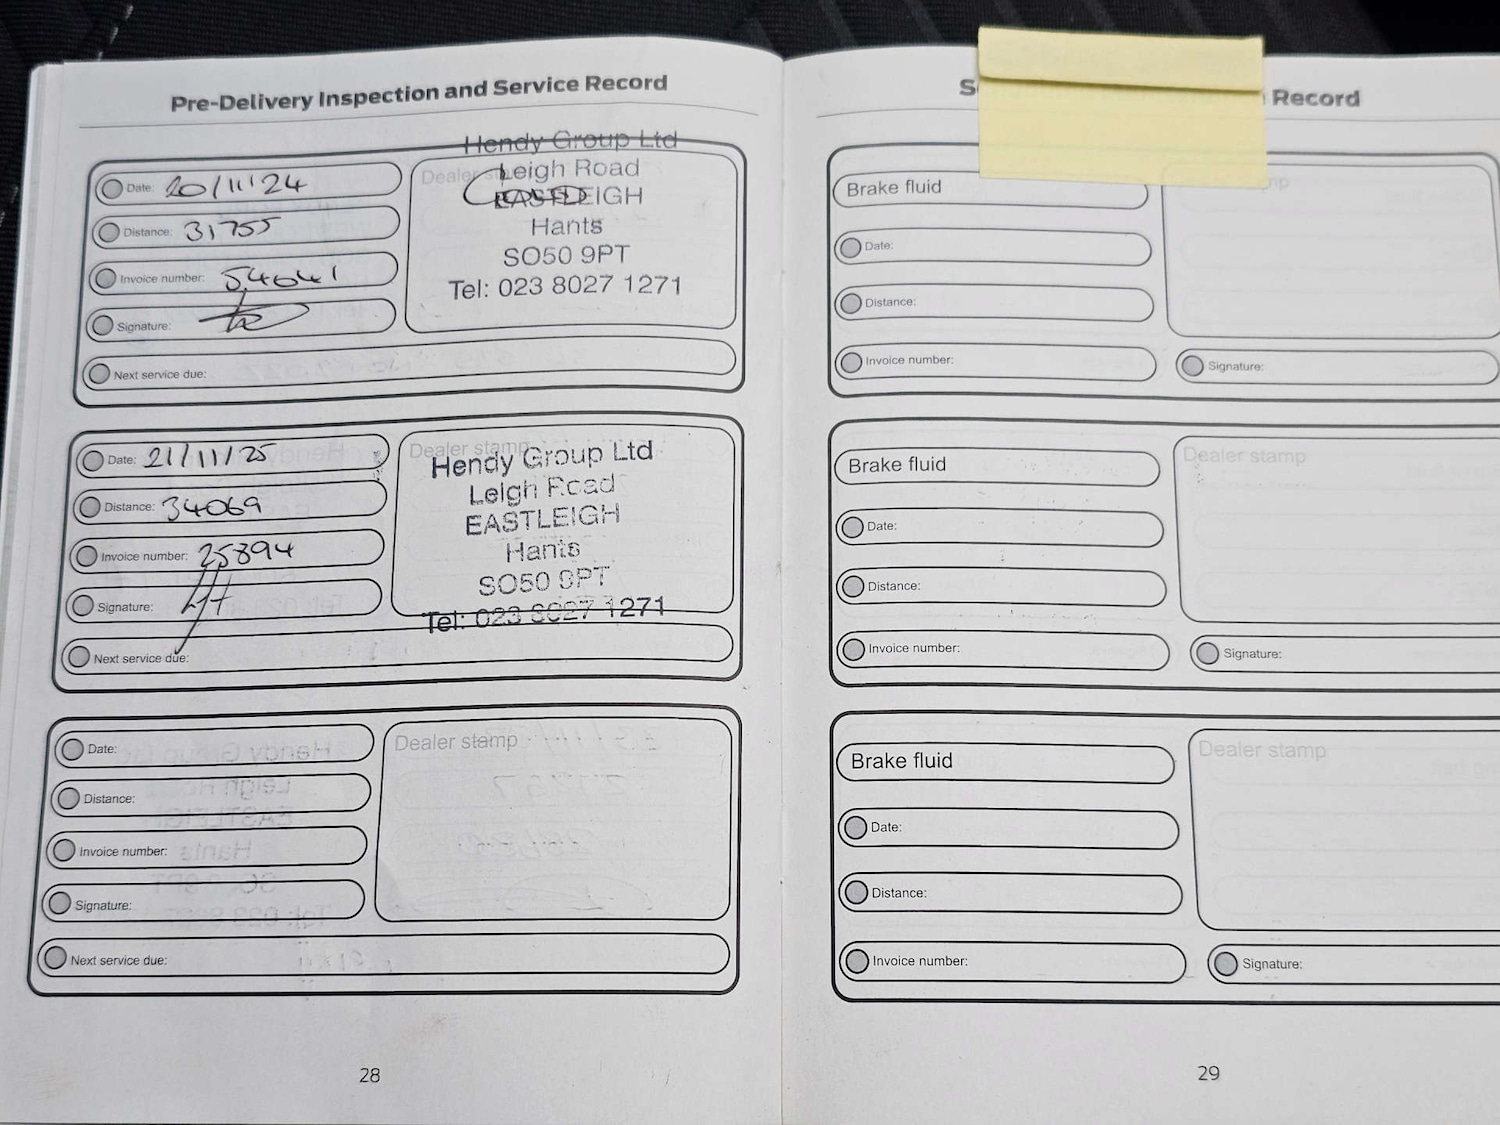 Pre-Delivery Inspection and Service Record
Date: 20/11/24
Distance: 31755
Invoice number: 54641
Signature:
Next service due:
Dealer
Hendy Group Ltd
Leigh Road
EASTLEIGH
Hants
SO50 9PT
Tel: 023 8027 1271
Date: 21/11/25
Distance: 34069
Invoice number: 25894
Signature:
Next service due:
Dealer stamp
Hendy Group Ltd
Leigh Road
EASTLEIGH
Hants
SO50 9PT
Tel: 023 8027 1271
Date:
Distance:
Invoice number:
Signature:
Next service due:
Dealer stamp
28
Record
Brake fluid
Date:
Distance:
Invoice number:
Signature:
Brake fluid
Dealer stamp
Date:
Distance:
Invoice number:
Signature:
Brake fluid
Dealer stamp
Date:
Distance:
Invoice number:
Signature:
29